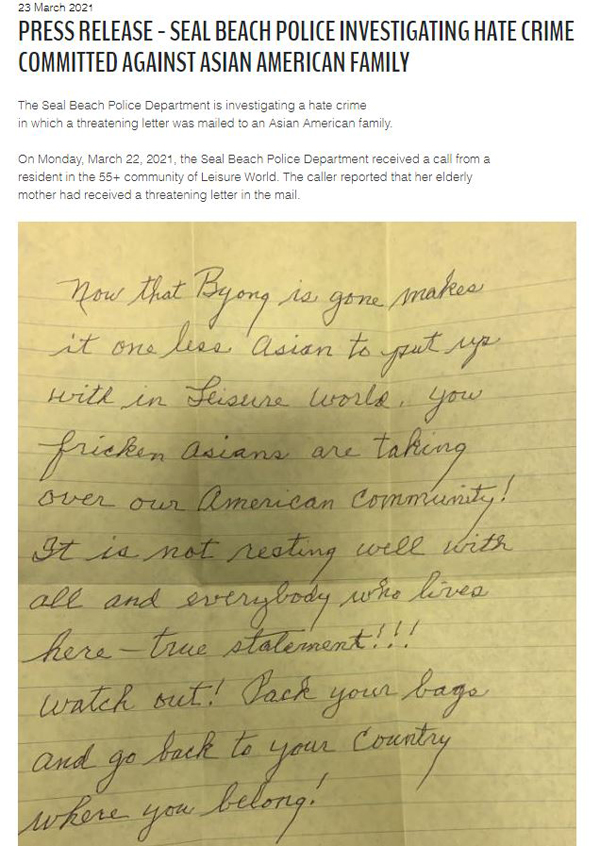 23 March 2021
PRESS RELEASE - SEAL BEACH POLICE INVESTIGATING HATE CRIME
COMMITTED AGAINST ASIAN AMERICAN FAMILY
The Seal Beach Police Department is investigating a hate crime
in which a threatening letter was mailed to an Asian American family.
On Monday, March 22, 2021, the Seal Beach Police Department received a call from a
resident in the 55+ community of Leisure World. The caller reported that her elderly
mother had received a threatening letter in the mail.
Now that Byong is gone makes
it one less Asian to put up
with in Leisure World. You
fricken Asians are taking
over our American Community!
It is not resting well with
all and everybody who lives
here - true statement!!!
Watch out! Pack your bags
and go back to your Country
where you belong!